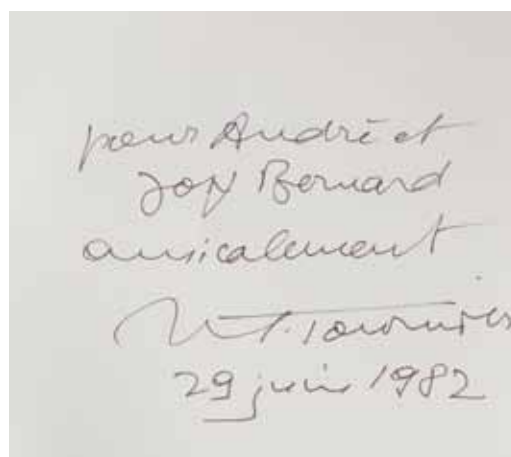 pour André et
Joy Bernard
amicalement
M. Tournier
29 juin 1982